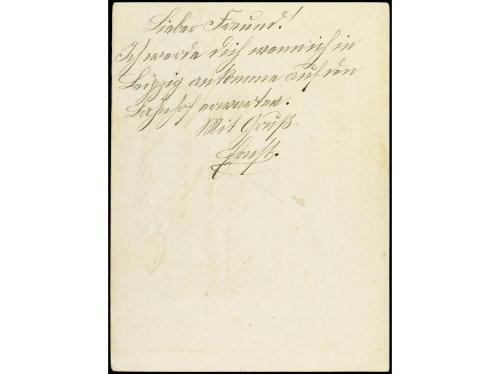 Lieber Freund!
Ich werde dich wenn ich in
Leipzig ankomme auf den
Bahnhof erwarten.
Mit Gruß
Ernst.